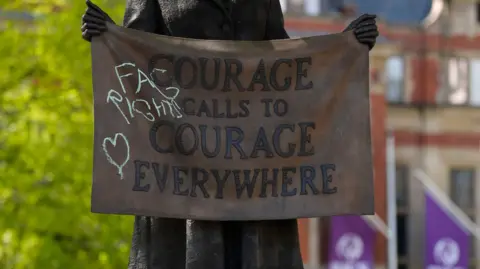 FAG
RIGHTS
COURAGE
CALLS TO
COURAGE
EVERYWHERE